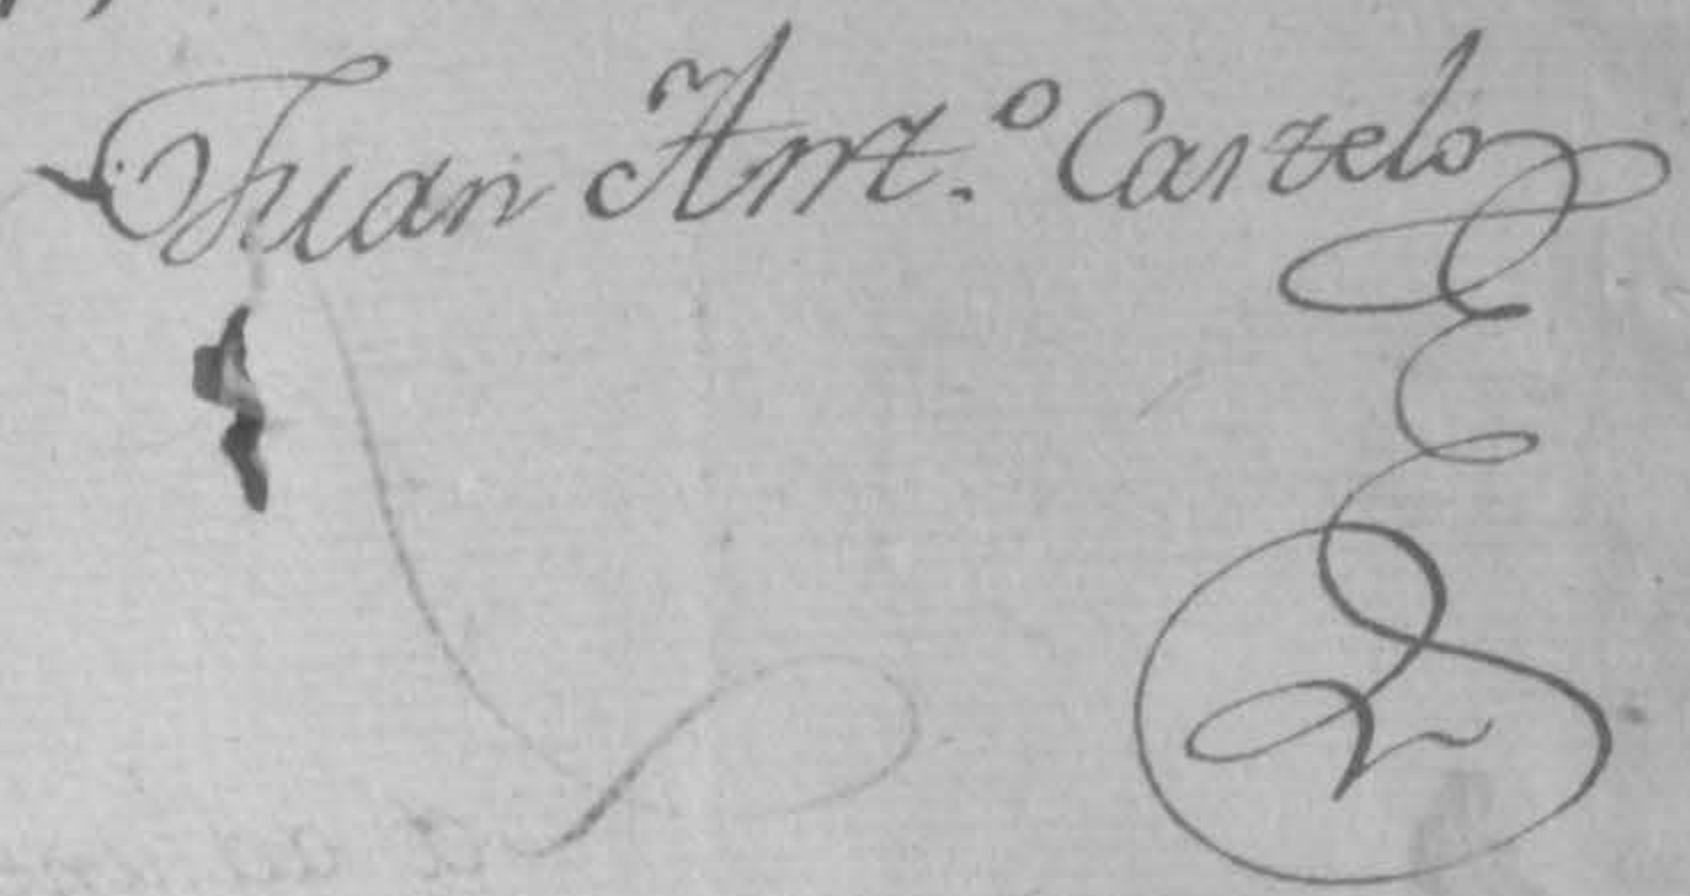 Juan Ant.º Castelo